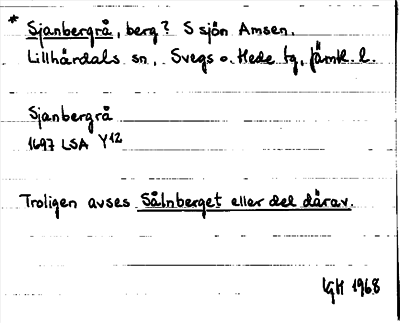 * Sjanbergrå, berg? S sjön Amsen.
Lillhärdals sn, Svegs o. Hede tg, Jämtl. l.
Sjanbergrå
1697 LSA Y12
Troligen avses Sålnberget eller del därav.
LGH 1968